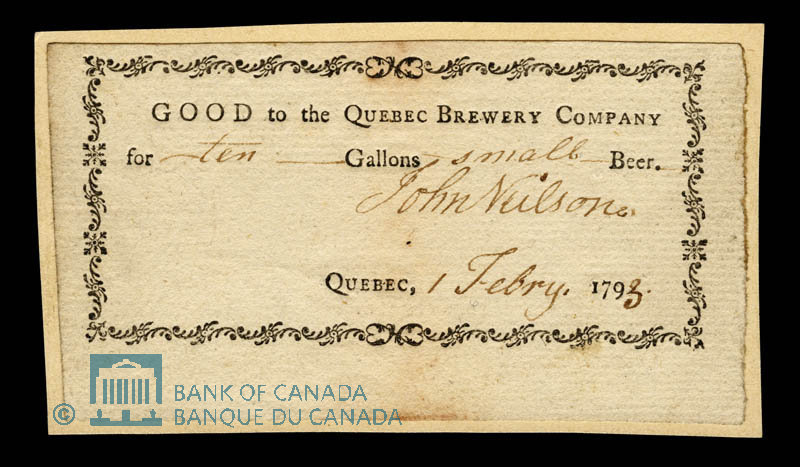 GOOD to the QUEBEC BREWERY COMPANY
for ten Gallons small Beer.
John Neilson
QUEBEC, 1 Febry. 1793.
BANK OF CANADA
© BANQUE DU CANADA